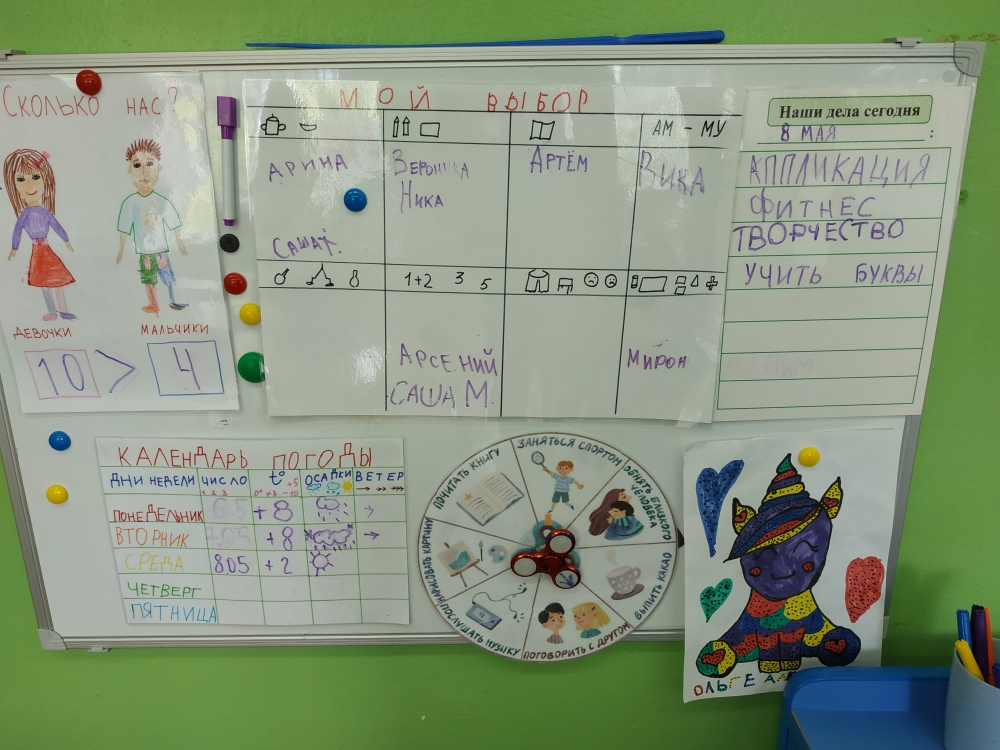 СКОЛЬКО НАС?
ДЕВОЧКИ МАЛЬЧИКИ
10 > 4
МОЙ ВЫБОР
АМ - МУ
АРИНА
САШАТ.
ВЕРОНИКА
НИКА
АРТЁМ
ВИКА
1+2 3 5
АРСЕНИЙ
САША М.
МИРОН
Наши дела сегодня
8 МАЯ :
АППЛИКАЦИЯ
ФИТНЕС
ТВОРЧЕСТВО
УЧИТЬ БУКВЫ
КАЛЕНДАРЬ ПОГОДЫ
ДНИ НЕДЕЛИ ЧИСЛО t° ОСАДКИ ВЕТЕР
ПОНЕДЕЛЬНИК +8
ВТОРНИК +8
СРЕДА 805 +2
ЧЕТВЕРГ
ПЯТНИЦА
ЗАНЯТЬСЯ СПОРТОМ
ОБНЯТЬ БЛИЗКОГО
ЧЕЛОВЕКА
ВЫПИТЬ КАКАО
ПОГОВОРИТЬ С ДРУГОМ
ПОСЛУШАТЬ МУЗЫКУ
НАРИСОВАТЬ КАРТИНУ
ПОЧИТАТЬ КНИГУ
ОЛЬГЕ